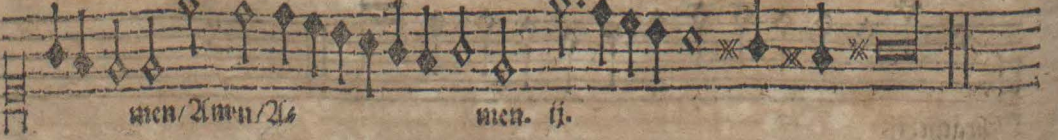 men/Amen/A⸗ men. ij.